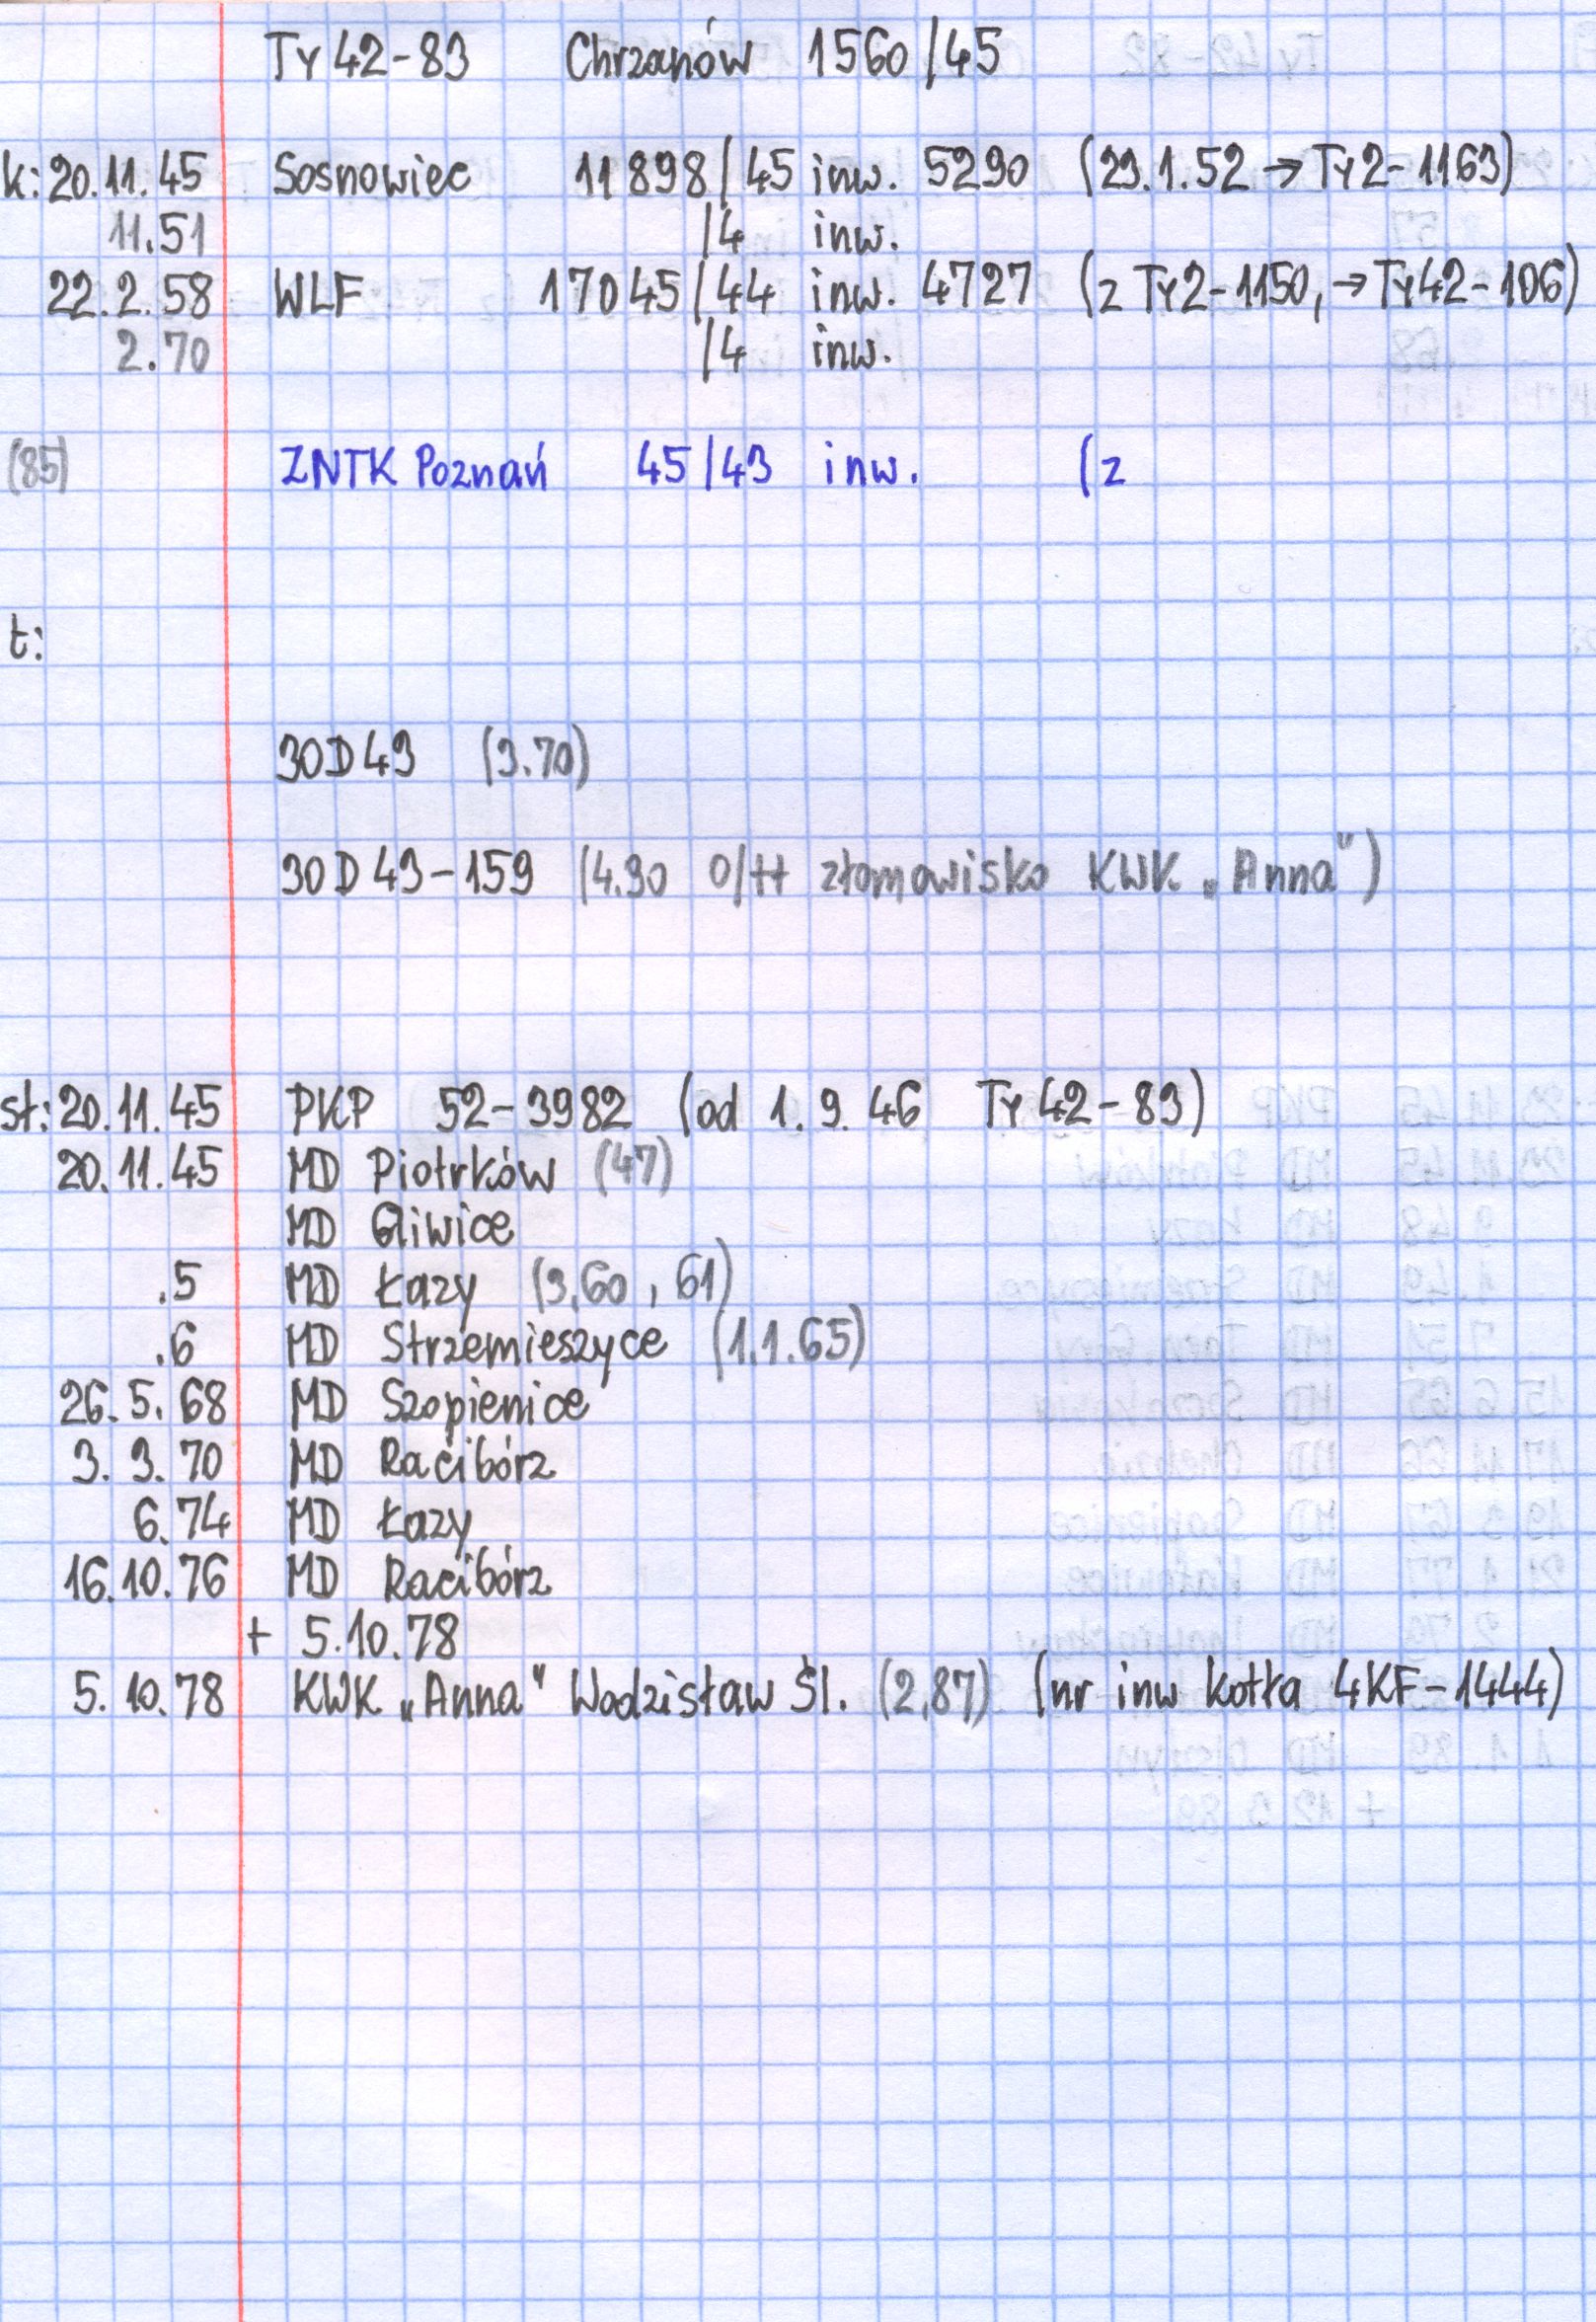 Ty42-83 Chrzanów 1560/45
k: 20.11.45 Sosnowiec 11898/45 inw. 5290 (29.1.52 → Ty2-1163)
11.51 /4 inw.
22.2.58 WLF 17045/44 inw. 4727 (z Ty2-1150, → Ty42-106)
2.70 /4 inw.
(85) ZNTK Poznań 45/43 inw. (z
t:
30D43 (3.70)
30D43-159 (4.90 o/tt złomowisko KWK „Anna")
st: 20.11.45 PKP 52-3982 (od 1.9.46 Ty42-83)
20.11.45 MD Piotrków (47)
MD Gliwice
.5 MD Łazy (3,60, 61)
.6 MD Strzemieszyce (1.1.65)
26.5.68 MD Szopienice
3.3.70 MD Racibórz
6.74 MD Łazy
16.10.76 MD Racibórz
+ 5.10.78
5.10.78 KWK „Anna" Wodzisław Śl. (2,87) (nr inw kotła 4KF-1444)